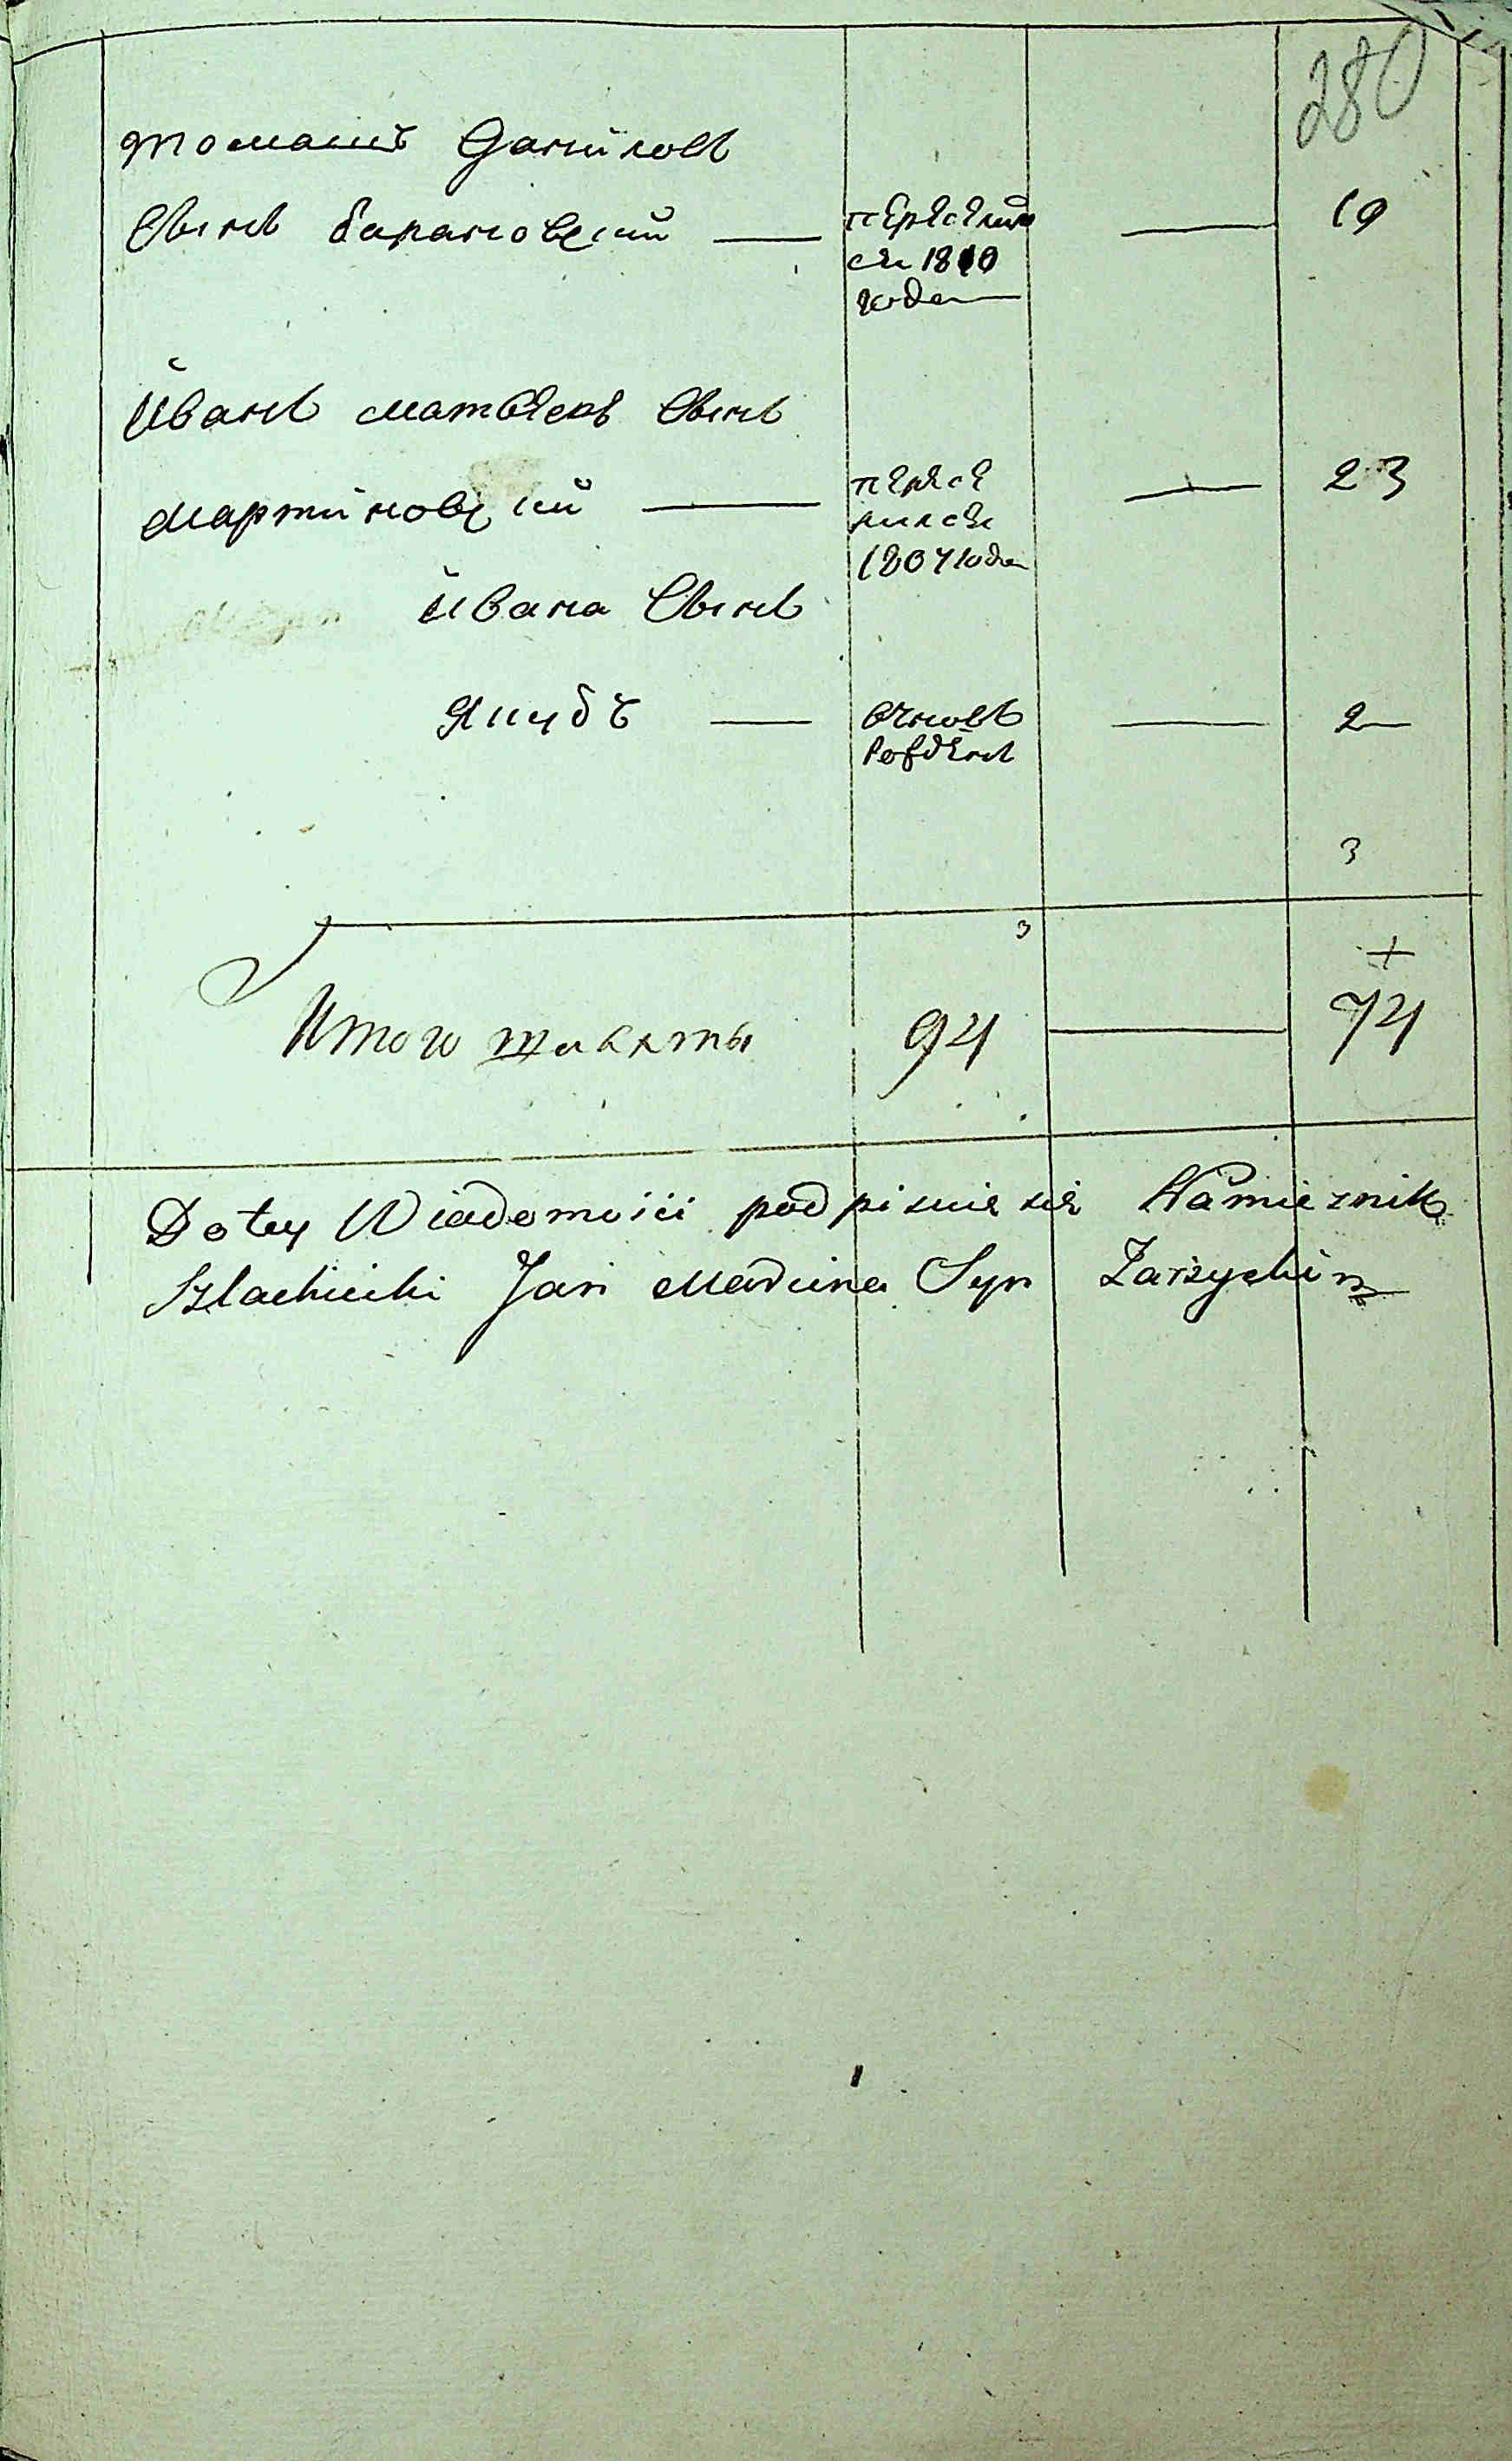 280
томашъ Даниловъ
Сынъ барановский — перяселил — 19
ся 1810
года
Иванъ матвеевъ Сынъ
мартиновский — перясе — 23
лился
1807 года
Ивана Сынъ
Якубъ — вчновъ — 2
рожденъ
3
3
+
Итого шляхты 94 — 74
Do tey Wiadomości podpisuie się Namiesnik
Szlachecki Jan Marcina Syn Zarzycki